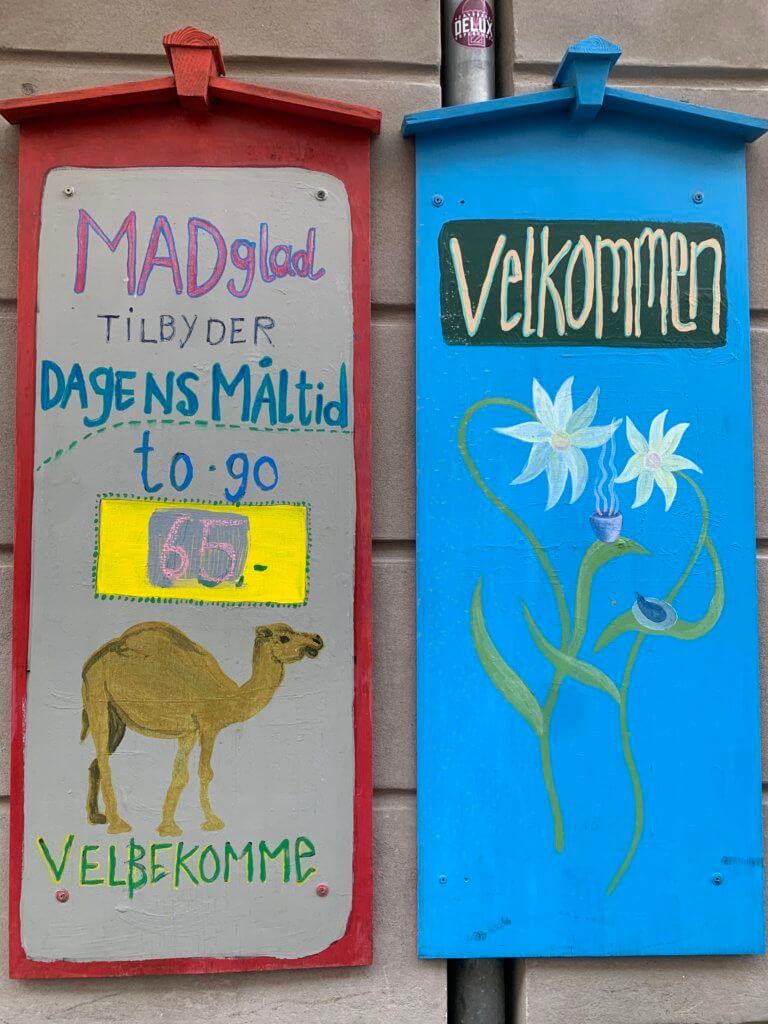 MADglad
TILBYDER
DAGENS MÅLtid
to·go
65,-
VELBEKOMME
DELUX
Velkommen